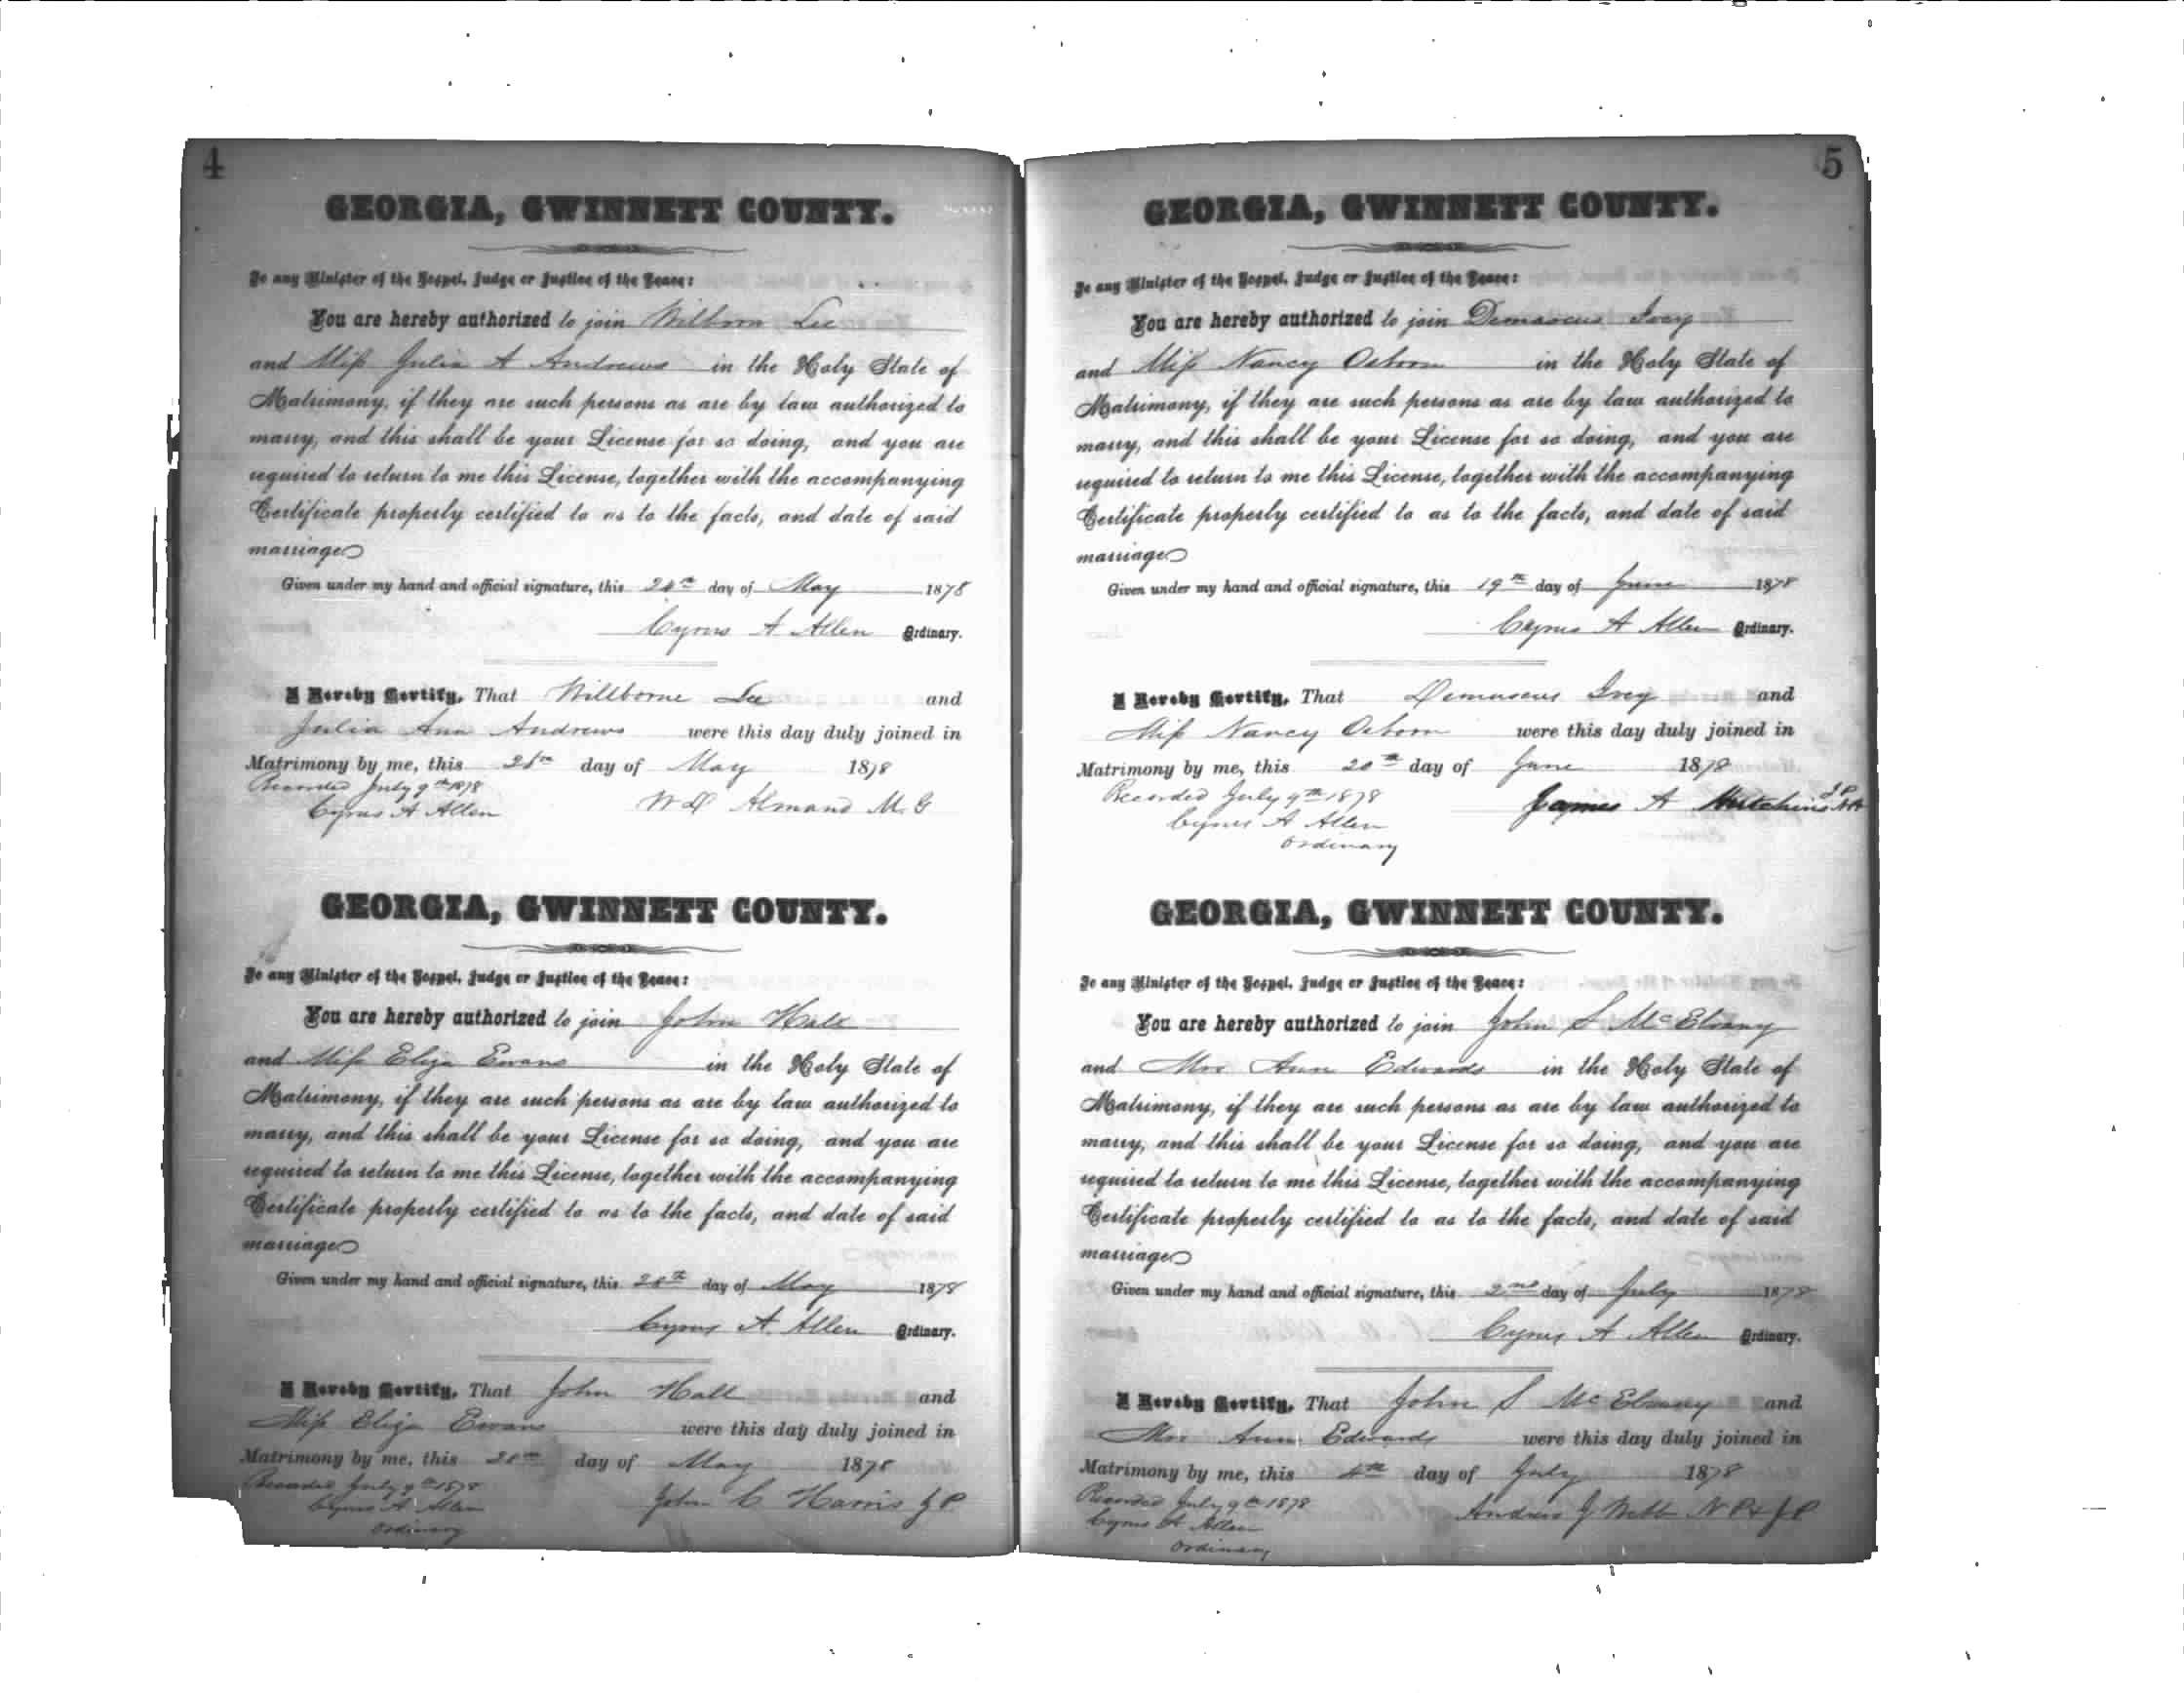 4
GEORGIA, GWINNETT COUNTY.
To any Minister of the Gospel, Judge or Justice of the Peace:
You are hereby authorized to join Wilborn Lee
and Miss Julia A Andrews in the Holy State of
Matrimony, if they are such persons as are by law authorized to
marry, and this shall be your License for so doing, and you are
required to return to me this License, together with the accompanying
Certificate properly certified to as to the facts, and date of said
marriage
Given under my hand and official signature, this day of May 1878
Cyrus A Allen Ordinary.
I Hereby Certify, That Willborne Lee and
Julia Ann Andrews were this day duly joined in
Matrimony by me, this day of May 1878
Recorded July 9th 1878
Cyrus A Allen
W D Almand M. G
GEORGIA, GWINNETT COUNTY.
To any Minister of the Gospel, Judge or Justice of the Peace:
You are hereby authorized to join John Hall
and Miss Eliza Evans in the Holy State of
Matrimony, if they are such persons as are by law authorized to
marry, and this shall be your License for so doing, and you are
required to return to me this License, together with the accompanying
Certificate properly certified to as to the facts, and date of said
marriage
Given under my hand and official signature, this 28th day of May 1878
Cyrus A. Allen Ordinary.
I Hereby Certify, That John Hall and
Miss Eliza Evans were this day duly joined in
Matrimony by me, this day of May 1878
Recorded July 9th 1878
Cyrus A Allen
Ordinary
John C Harris J P
5
GEORGIA, GWINNETT COUNTY.
To any Minister of the Gospel, Judge or Justice of the Peace:
You are hereby authorized to join Demascus Ivey
and Miss Nancy Osborn in the Holy State of
Matrimony, if they are such persons as are by law authorized to
marry, and this shall be your License for so doing, and you are
required to return to me this License, together with the accompanying
Certificate properly certified to as to the facts, and date of said
marriage
Given under my hand and official signature, this 19th day of June 1878
Cyrus A Allen Ordinary.
I Hereby Certify, That Demascus Ivey and
Miss Nancy Osborn were this day duly joined in
Matrimony by me, this 20th day of June 1878
Recorded July 9th 1878
Cyrus A Allen
Ordinary
James A Hutchins
GEORGIA, GWINNETT COUNTY.
To any Minister of the Gospel, Judge or Justice of the Peace:
You are hereby authorized to join John S McElvany
and Mrs Ann Edwards in the Holy State of
Matrimony, if they are such persons as are by law authorized to
marry, and this shall be your License for so doing, and you are
required to return to me this License, together with the accompanying
Certificate properly certified to as to the facts, and date of said
marriage
Given under my hand and official signature, this 2nd day of July 1878
Cyrus A Allen Ordinary.
I Hereby Certify, That John S McElvany and
Mrs Ann Edwards were this day duly joined in
Matrimony by me, this 4th day of July 1878
Recorded July 9th 1878
Cyrus A Allen
Ordinary
Andrew J Webb N P & J P